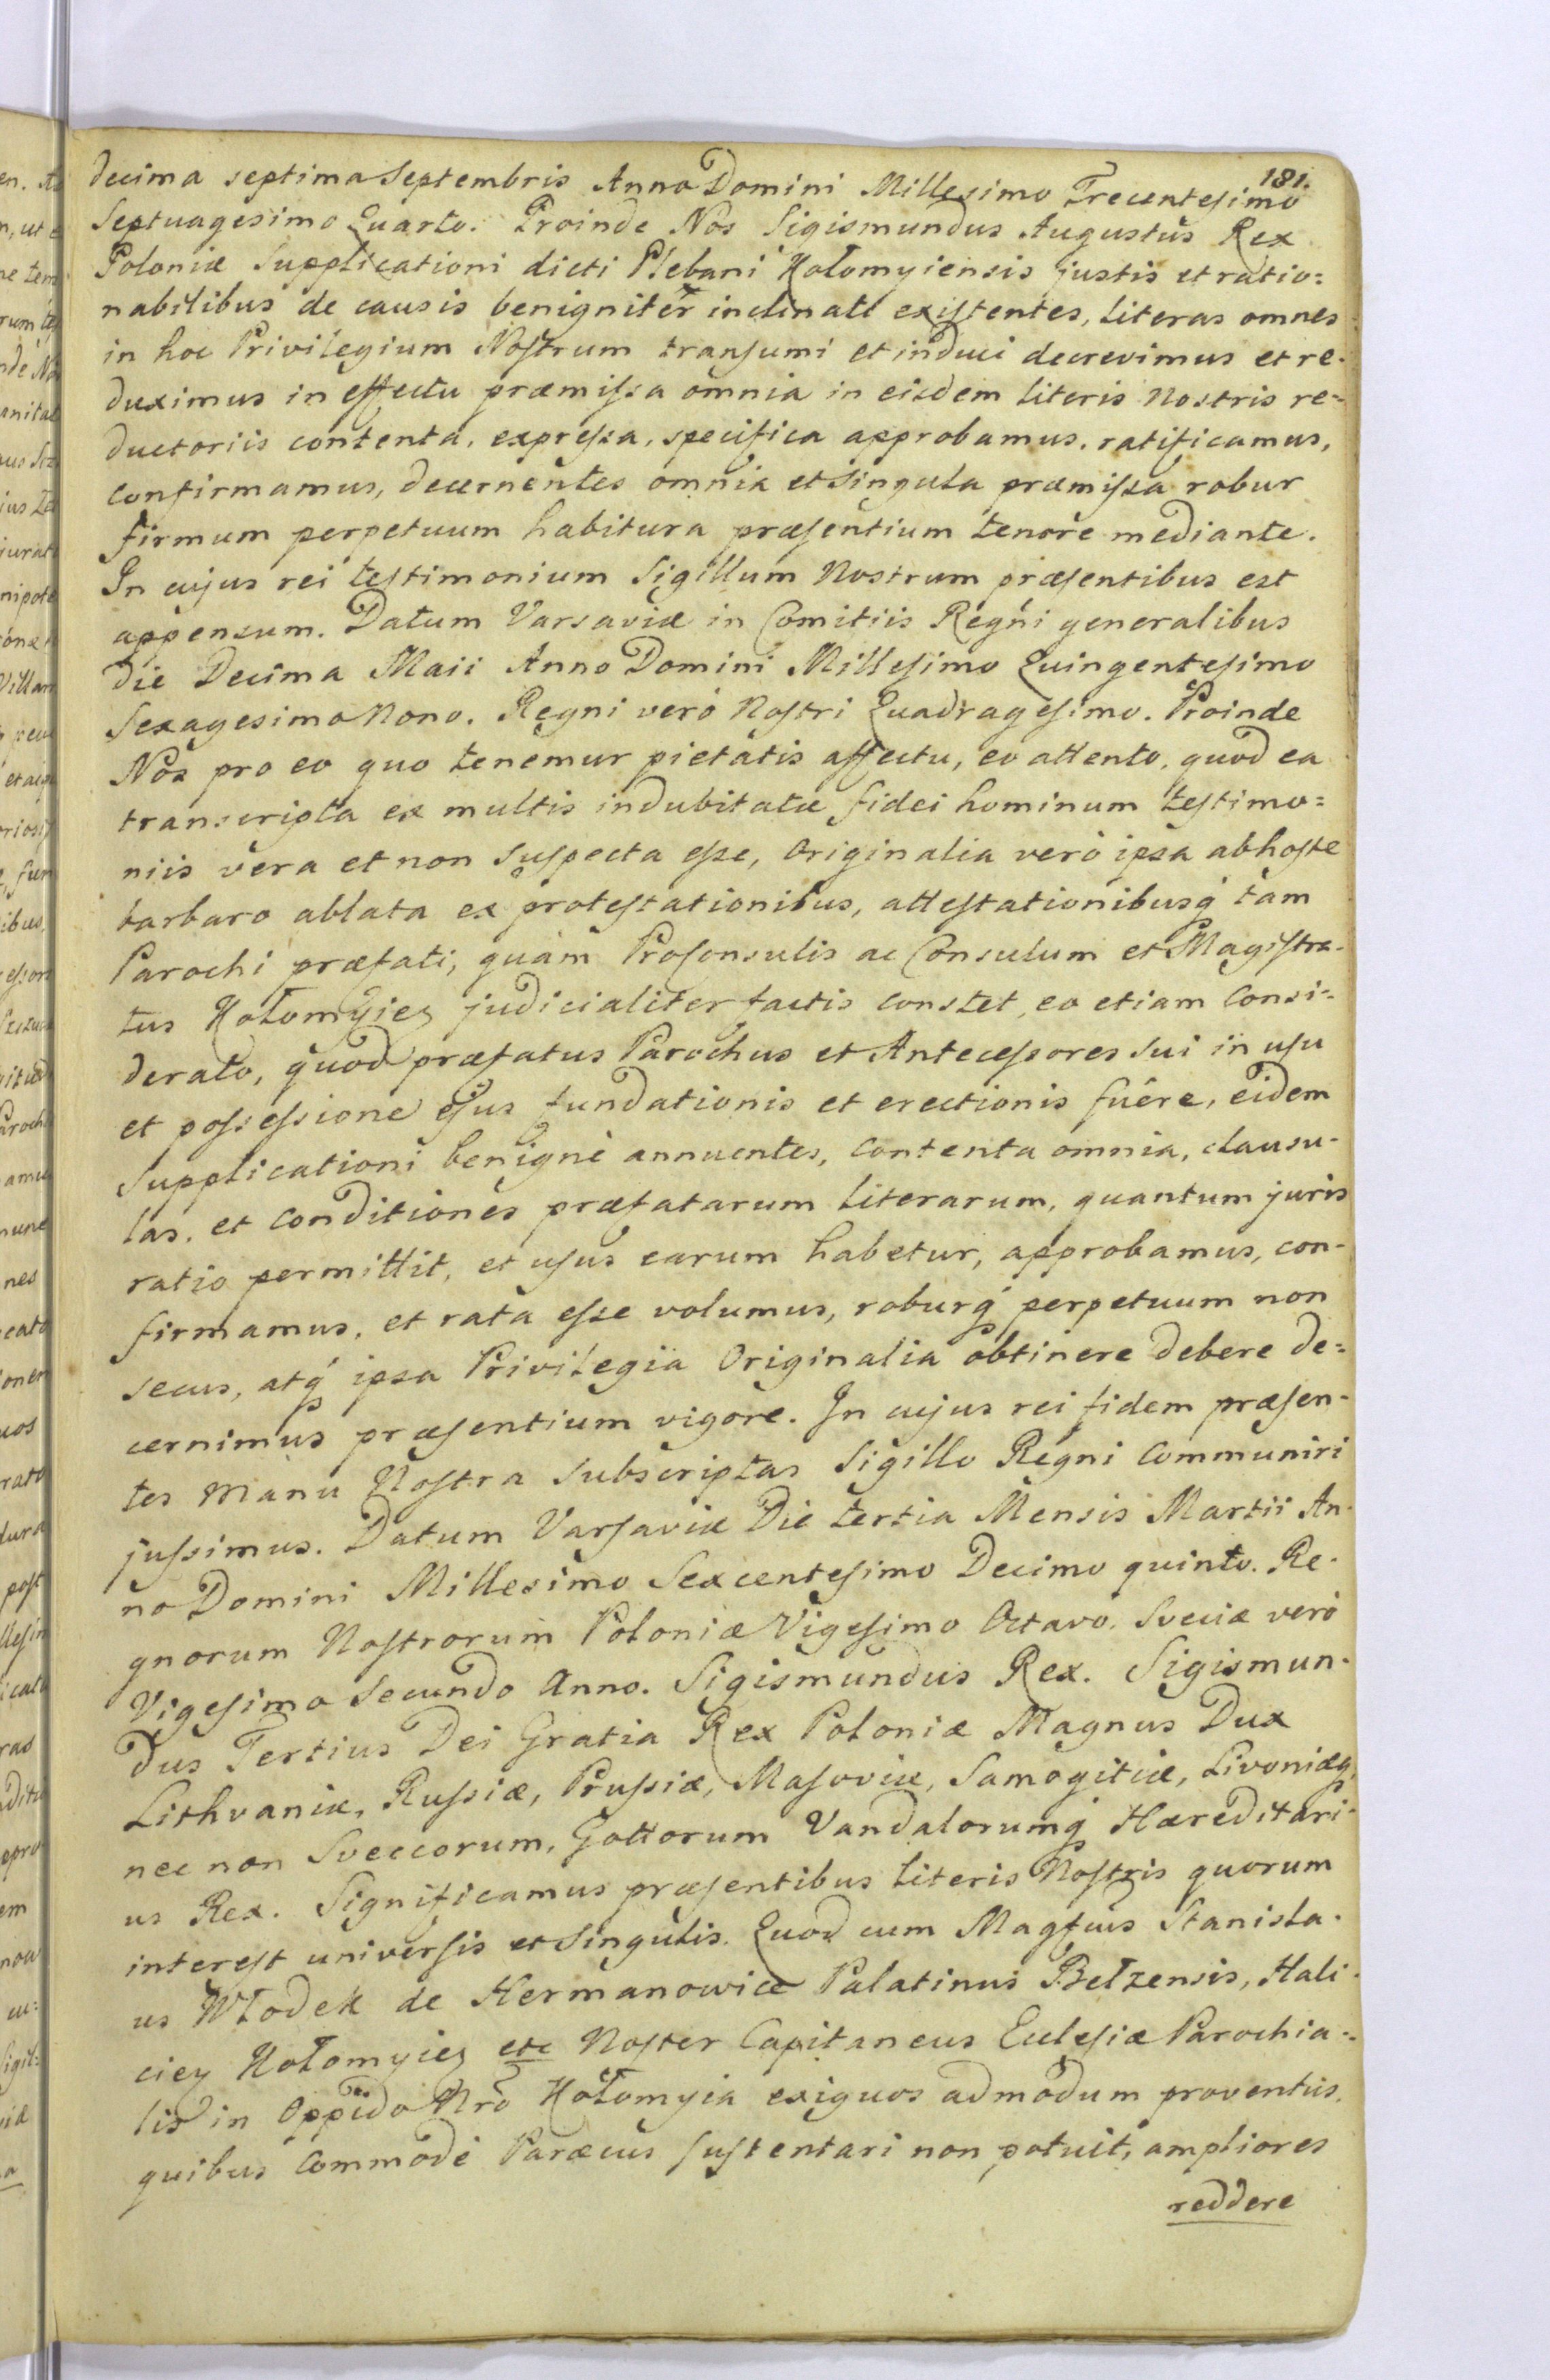 181.
decima septima Septembris Anno Domini Millesimo Trecentesimo
Septuagesimo Quarto. Proinde Nos Sigismundus Augustus Rex
Poloniæ Supplicationi dicti Plebani Kołomyiensis justis et ratio=
nabilibus de causis benigniter inclinati existentes, literas omnes
in hoc Privilegium Nostrum transumi et induci decrevimus et re-
duximus in effectu præmissa omnia in eisdem literis Nostris re=
ductoriis contenta, expressa, specifica approbamus, ratificamus,
confirmamus, decernentes omnia et singula præmissa robur
firmum perpetuum habitura præsentium tenore mediante.
In cujus rei testimonium Sigillum Nostrum præsentibus est
appensum. Datum Varsaviæ in Comitiis Regni generalibus
die Decima Maii Anno Domini Millesimo Quingentesimo
Sexagesimo Nono. Regni verò Nostri Quadragesimo. Proinde
Nos pro eo quo tenemur pietatis affectu, eo attento, quod ea
transcripta ex multis indubitatæ fidei hominum testimo=
niis vera et non suspecta esse, Originalia verò ipsa ab hoste
barbaro ablata ex protestationibus, attestationibusq́ tam
Parochi præfati, quàm Proconsulis ac Consulum et Magistra-
tus Kołomyien judicialiter factis constet, eo etiam consi=
derato, quod præfatus Parochus et Antecessores sui in usu
et possessione ejus fundationis et erectionis fuêre, eidem
Supplicationi benignè annuentes, contenta omnia, clausu-
las, et conditiones præfatarum literarum, quantum juris
ratio permittit, et usus earum habetur, approbamus, con-
firmamus, et rata esse volumus, roburq́ perpetuum non
secus, atq́ ipsa Privilegia Originalia obtinere debere de=
cernimus præsentium vigore. In cujus rei fidem præsen-
tes manu Nostra subscriptas Sigillo Regni communiri
jussimus. Datum Varsaviæ Die tertia Mensis Martii An-
no Domini Millesimo Sexcentesimo Decimo quinto. Re-
gnorum Nostrorum Poloniæ Vigesimo Octavo. Sveciæ verò
Vigesimo Secundo Anno. Sigismundus Rex. Sigismun-
dus Tertius Dei Gratia Rex Poloniæ Magnus Dux
Lithvaniæ, Russiæ, Prussiæ, Masoviæ, Samogitiæ, Livoniæq́,
nec non Sveccorum, Gottorum Vandalorumq́ Hæreditari-
us Rex. Significamus præsentibus literis Nostris quorum
interest universis et singulis. Quod cum Magfcus Stanisla-
us Włodek de Hermanowice Palatinus Bełzensis, Hali-
cien Kołomyien etc Noster Capitaneus Eclesiæ Parochia-
lis in Oppido Nrõ Kołomyia exiguos admodum proventus,
quibus commodè Paræcus sustentari non potuit, ampliores
reddere